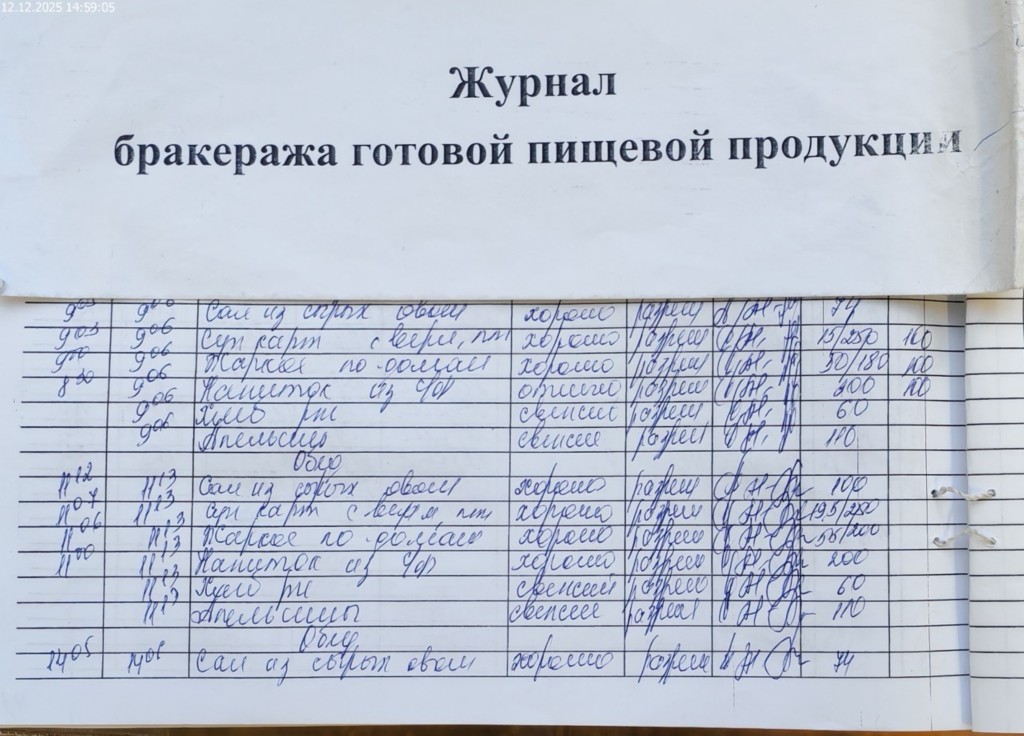 12.12.2025 14:59:05
Журнал
бракеража готовой пищевой продукции
9 9⁰⁶ Сал из сырых овощ хорошо разреш 74
9⁰³ 9⁰⁶ Суп карт с верм, пт хорошо разреш 15/250 100
9⁰⁰ 9⁰⁶ Жаркое по-домаш хорошо разреш 50/180 100
8⁵⁰ 9⁰⁶ Напиток из ч/ф отлично разреш 200 100
9⁰⁶ Хлеб рж свежий разреш 60
9⁰⁶ Апельсин свежие разреш 110
Обед
11¹² 11¹³ Сал из сырых овощ хорошо разреш 100
11⁰⁷ 11¹³ Суп карт с верм, пт хорошо разреш 19,5/250
11⁰⁶ 11¹³ Жаркое по-домаш хорошо разреш 55/200
11⁰⁰ 11¹³ Напиток из ч/ф хорошо разреш 200
11¹³ Хлеб рж свежий разреш 60
11¹³ Апельсины свежие разреш 110
Обед
14⁰⁵ 14⁰⁶ Сал из сырых овощ хорошо разреш 74